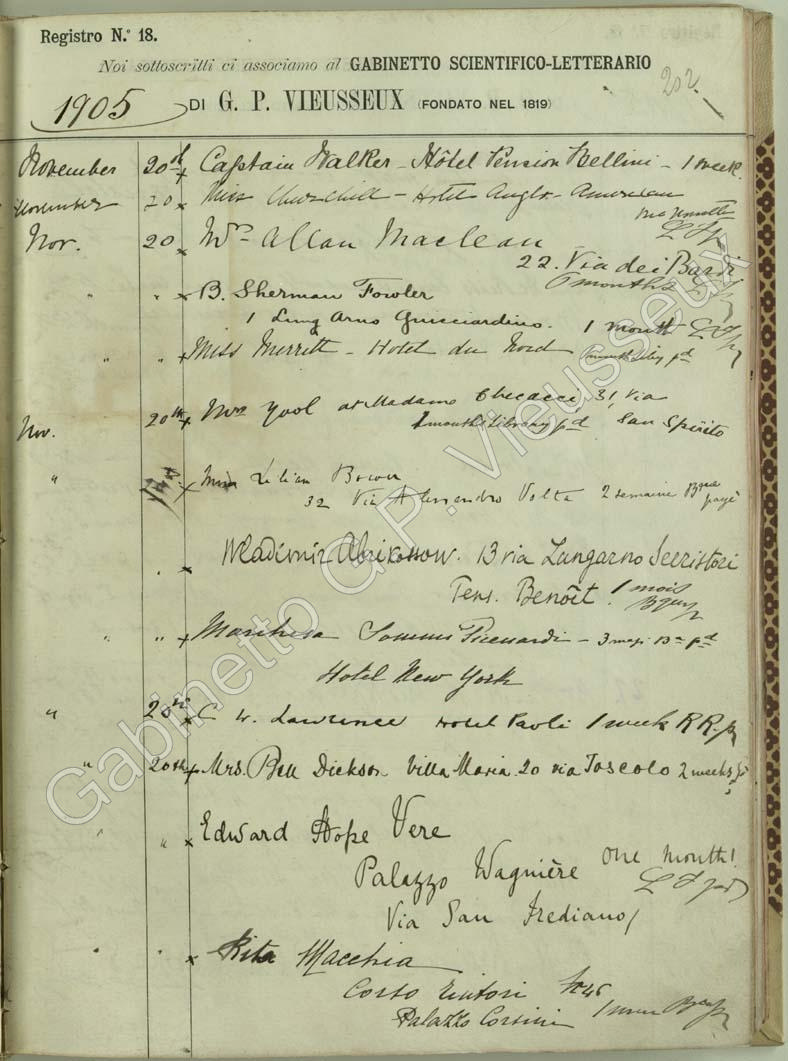 Registro N.° 18.
Noi sottoscritti ci associamo al GABINETTO SCIENTIFICO-LETTERARIO
202.
1905 DI G. P. VIEUSSEUX (FONDATO NEL 1819)
November 20th x Captain Walker - Hôtel Pension Bellini - 1 week.
November 20 x Miss Churchill - Hotel Anglo-American
Nov. 20 Allan Maclean
22. Via dei Bardi
6 months
" " x B. Sherman Fowler
1 Lung Arno Guicciardini. 1 month
" " x Miss Merrett - Hotel du Nord
Nov. 20th x Mrs Yool at Madame 31 Via
library pd San Spirito
" x Miss Lilian
32 Via Alessandro Volta 2 semaine
x Wladimir Abrikossow. 13 via Lungarno Serristori
Pens. Benoît. 1 mois
" " x Marchesa Sommi Picenardi - 3
Hotel New York
" 20th x C. W. Lawrence Hotel Paoli 1 week
" 20th x Mrs. Bell Dickson Villa Maria 20 via Foscolo 2 weeks
" x Edward Hope Vere
Palazzo Wagnière One Month!
Via San Frediano
x Rita Macchia
Corso Tintori
Palazzo Corsini
Gabinetto G.P. Vieusseux